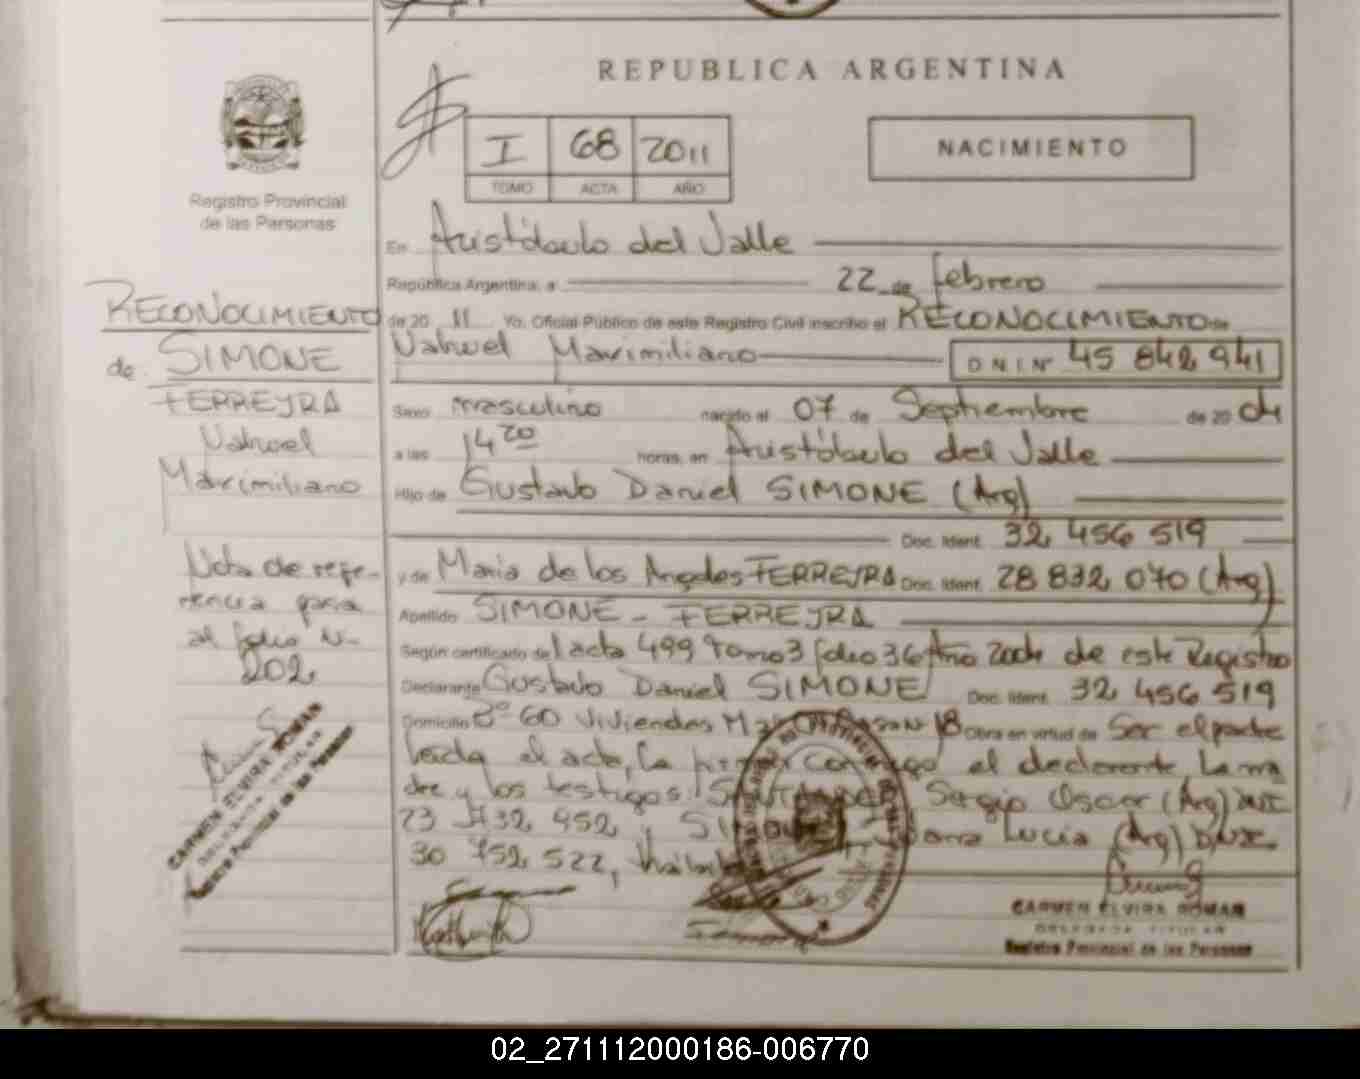 REPUBLICA ARGENTINA
I 68 2011
TOMO ACTA AÑO
NACIMIENTO
Registro Provincial
de las Personas
RECONOCIMIENTO
de SIMONE
FERREYRA
Nahuel
Maximiliano
Nota de refe-
rencia pasa
al folio N-
202
CARMEN ELVIRA ROMAN
DELEGADA TITULAR
Registro Provincial de las Personas
En Aristóbulo del Valle
República Argentina, a 22 de Febrero
de 20 11 Yo, Oficial Público de este Registro Civil inscribo el RECONOCIMIENTO de
Nahuel Maximiliano D N I Nº 45 842 941
Sexo masculino nacido el 07 de Septiembre de 20 04
a las 14 20 horas, en Aristóbulo del Valle
Hijo de Gustavo Daniel SIMONE (Arg)
Doc. Ident. 32 456 519
y de Maria de los Angeles FERREYRA Doc. Ident. 28 832 070 (Arg)
Apellido SIMONE - FERREYRA
Según certificado de l acta 499 Tomo 3 folio 36 Año 2004 de este Registro
Declarante Gustavo Daniel SIMONE Doc. Ident. 32 456 519
Domicilio Bº 60 Viviendas 18 Obra en virtud de Ser el padre
Leida el acta, la conmigo el declarante La ma
dre y los testigos. Sergio Oscar (Arg)
23 732 452, Lucia (Arg)
30 752 522,
CARMEN ELVIRA ROMAN
DELEGADA TITULAR
Registro Provincial de las Personas
02_271112000186-006770